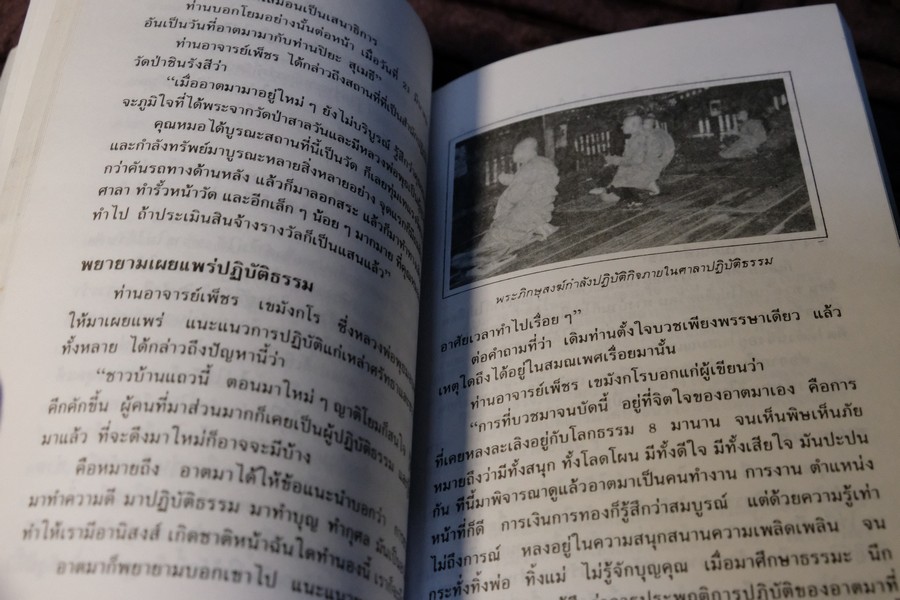 ท่านบอกโยมอย่างนั้นต่อหน้า เมื่อวันที่
อันเป็นวันที่อาตมามากับท่านปิยะ สุเมธี"
ท่านอาจารย์เพ็ชร ได้กล่าวถึงสถานที่ที่เป็น
วัดป่าชินรังสีว่า
"เมื่ออาตมามาอยู่ใหม่ ๆ ยังไม่บริบูรณ์ รู้สึก
จะภูมิใจที่ได้พระจากวัดป่าสาลวันและมีหลวงพ่อพุธ
คุณหมอได้บูรณะสถานที่นี้เป็นวัด ก็เลยทุ่มเท
และกำลังทรัพย์มาบูรณะหลายสิ่งหลายอย่าง จุดแรกก็
กว่าคันรถทางด้านหลัง แล้วก็มาลอกสระ แล้วก็มาทำ
ศาลา ทำรั้วหน้าวัด และอีกเล็ก ๆ น้อย ๆ มากมาย ที่คุณ
ทำไป ถ้าประเมินสินจ้างรางวัลก็เป็นแสนแล้ว"
พยายามเผยแพร่ปฏิบัติธรรม
ท่านอาจารย์เพ็ชร เขมังกโร ซึ่งหลวงพ่อพุธ
ให้มาเผยแพร่ แนะแนวการปฏิบัติแก่เหล่าศรัทธา
ทั้งหลาย ได้กล่าวถึงปัญหานี้ว่า
"ชาวบ้านแถวนี้ ตอนมาใหม่ ๆ ญาติโยมก็สนใจ
คึกคักขึ้น ผู้คนที่มาส่วนมากก็เคยเป็นผู้ปฏิบัติธรรม
มาแล้ว ที่จะดึงมาใหม่ก็อาจจะมีบ้าง
คือหมายถึง อาตมาได้ให้ข้อแนะนำบอกว่า
มาทำความดี มาปฏิบัติธรรม มาทำบุญ ทำกุศล มันเป็น
ทำให้เรามีอานิสงส์ เกิดชาติหน้าฉันใดทำนองนี้
อาตมาก็พยายามบอกเขาไป แนะแนว
พระภิกษุสงฆ์กำลังปฏิบัติกิจภายในศาลาปฏิบัติธรรม
อาศัยเวลาทำไปเรื่อย ๆ"
ต่อคำถามที่ว่า เดิมท่านตั้งใจบวชเพียงพรรษาเดียว แล้ว
เหตุใดถึงได้อยู่ในสมณเพศเรื่อยมานั้น
ท่านอาจารย์เพ็ชร เขมังกโรบอกแก่ผู้เขียนว่า
"การที่บวชมาจนบัดนี้ อยู่ที่จิตใจของอาตมาเอง คือการ
ที่เคยหลงละเลิงอยู่กับโลกธรรม 8 มานาน จนเห็นพิษเห็นภัย
หมายถึงว่ามีทั้งสนุก ทั้งโลดโผน มีทั้งดีใจ มีทั้งเสียใจ มันปะปน
กัน ทีนี้มาพิจารณาดูแล้วอาตมาเป็นคนทำงาน การงาน ตำแหน่ง
หน้าที่ก็ดี การเงินการทองก็รู้สึกว่าสมบูรณ์ แต่ด้วยความรู้เท่า
ไม่ถึงการณ์ หลงอยู่ในความสนุกสนานความเพลิดเพลิน จน
กระทั่งทิ้งพ่อ ทิ้งแม่ ไม่รู้จักบุญคุณ เมื่อมาศึกษาธรรมะ นึก
การประพฤติการปฏิบัติของอาตมาที่